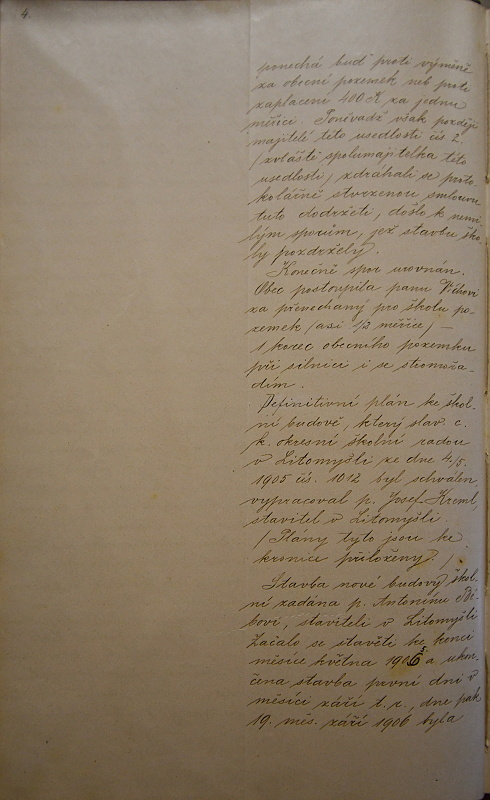 4.
ponechá buď proti výměně
za obecní pozemek neb proti
zaplacení 400 K za jednu
měřici. Poněvadž však později
majitelé této usedlosti čís. 2
/zvláště spolumajitelka této
usedlosti/ zdráhali se proto
kolárně stvrzenou smlouvu
tuto dodržeti, došlo k nemi
lým sporům, jež stavbu ško
ly pozdržely.
Konečně spor urovnán.
Obec postoupila panu
za přenechaný pro školu po-
zemek /asi 1/2 měřice/ —
1 korec obecního pozemku
při silnici i se stromořa-
dím.
Definitivní plán ke škol-
ní budově, který slav. c.
k. okresní školní radou
v Litomyšli ze dne 4./5.
1905 čís. 1012 byl schválen
vypracoval p. Josef Kreml
stavitel v Litomyšli.
/Plány tyto jsou ke
kronice přiloženy./
Stavba nové budovy škol-
ní zadána p. Antonínu
staviteli v Litomyšli
Začalo se stavěti ke konci
měsíce května 1905 a ukon-
čena stavba první dni v
měsíci září t. r., dne pak
19. měs. září 1906 byla